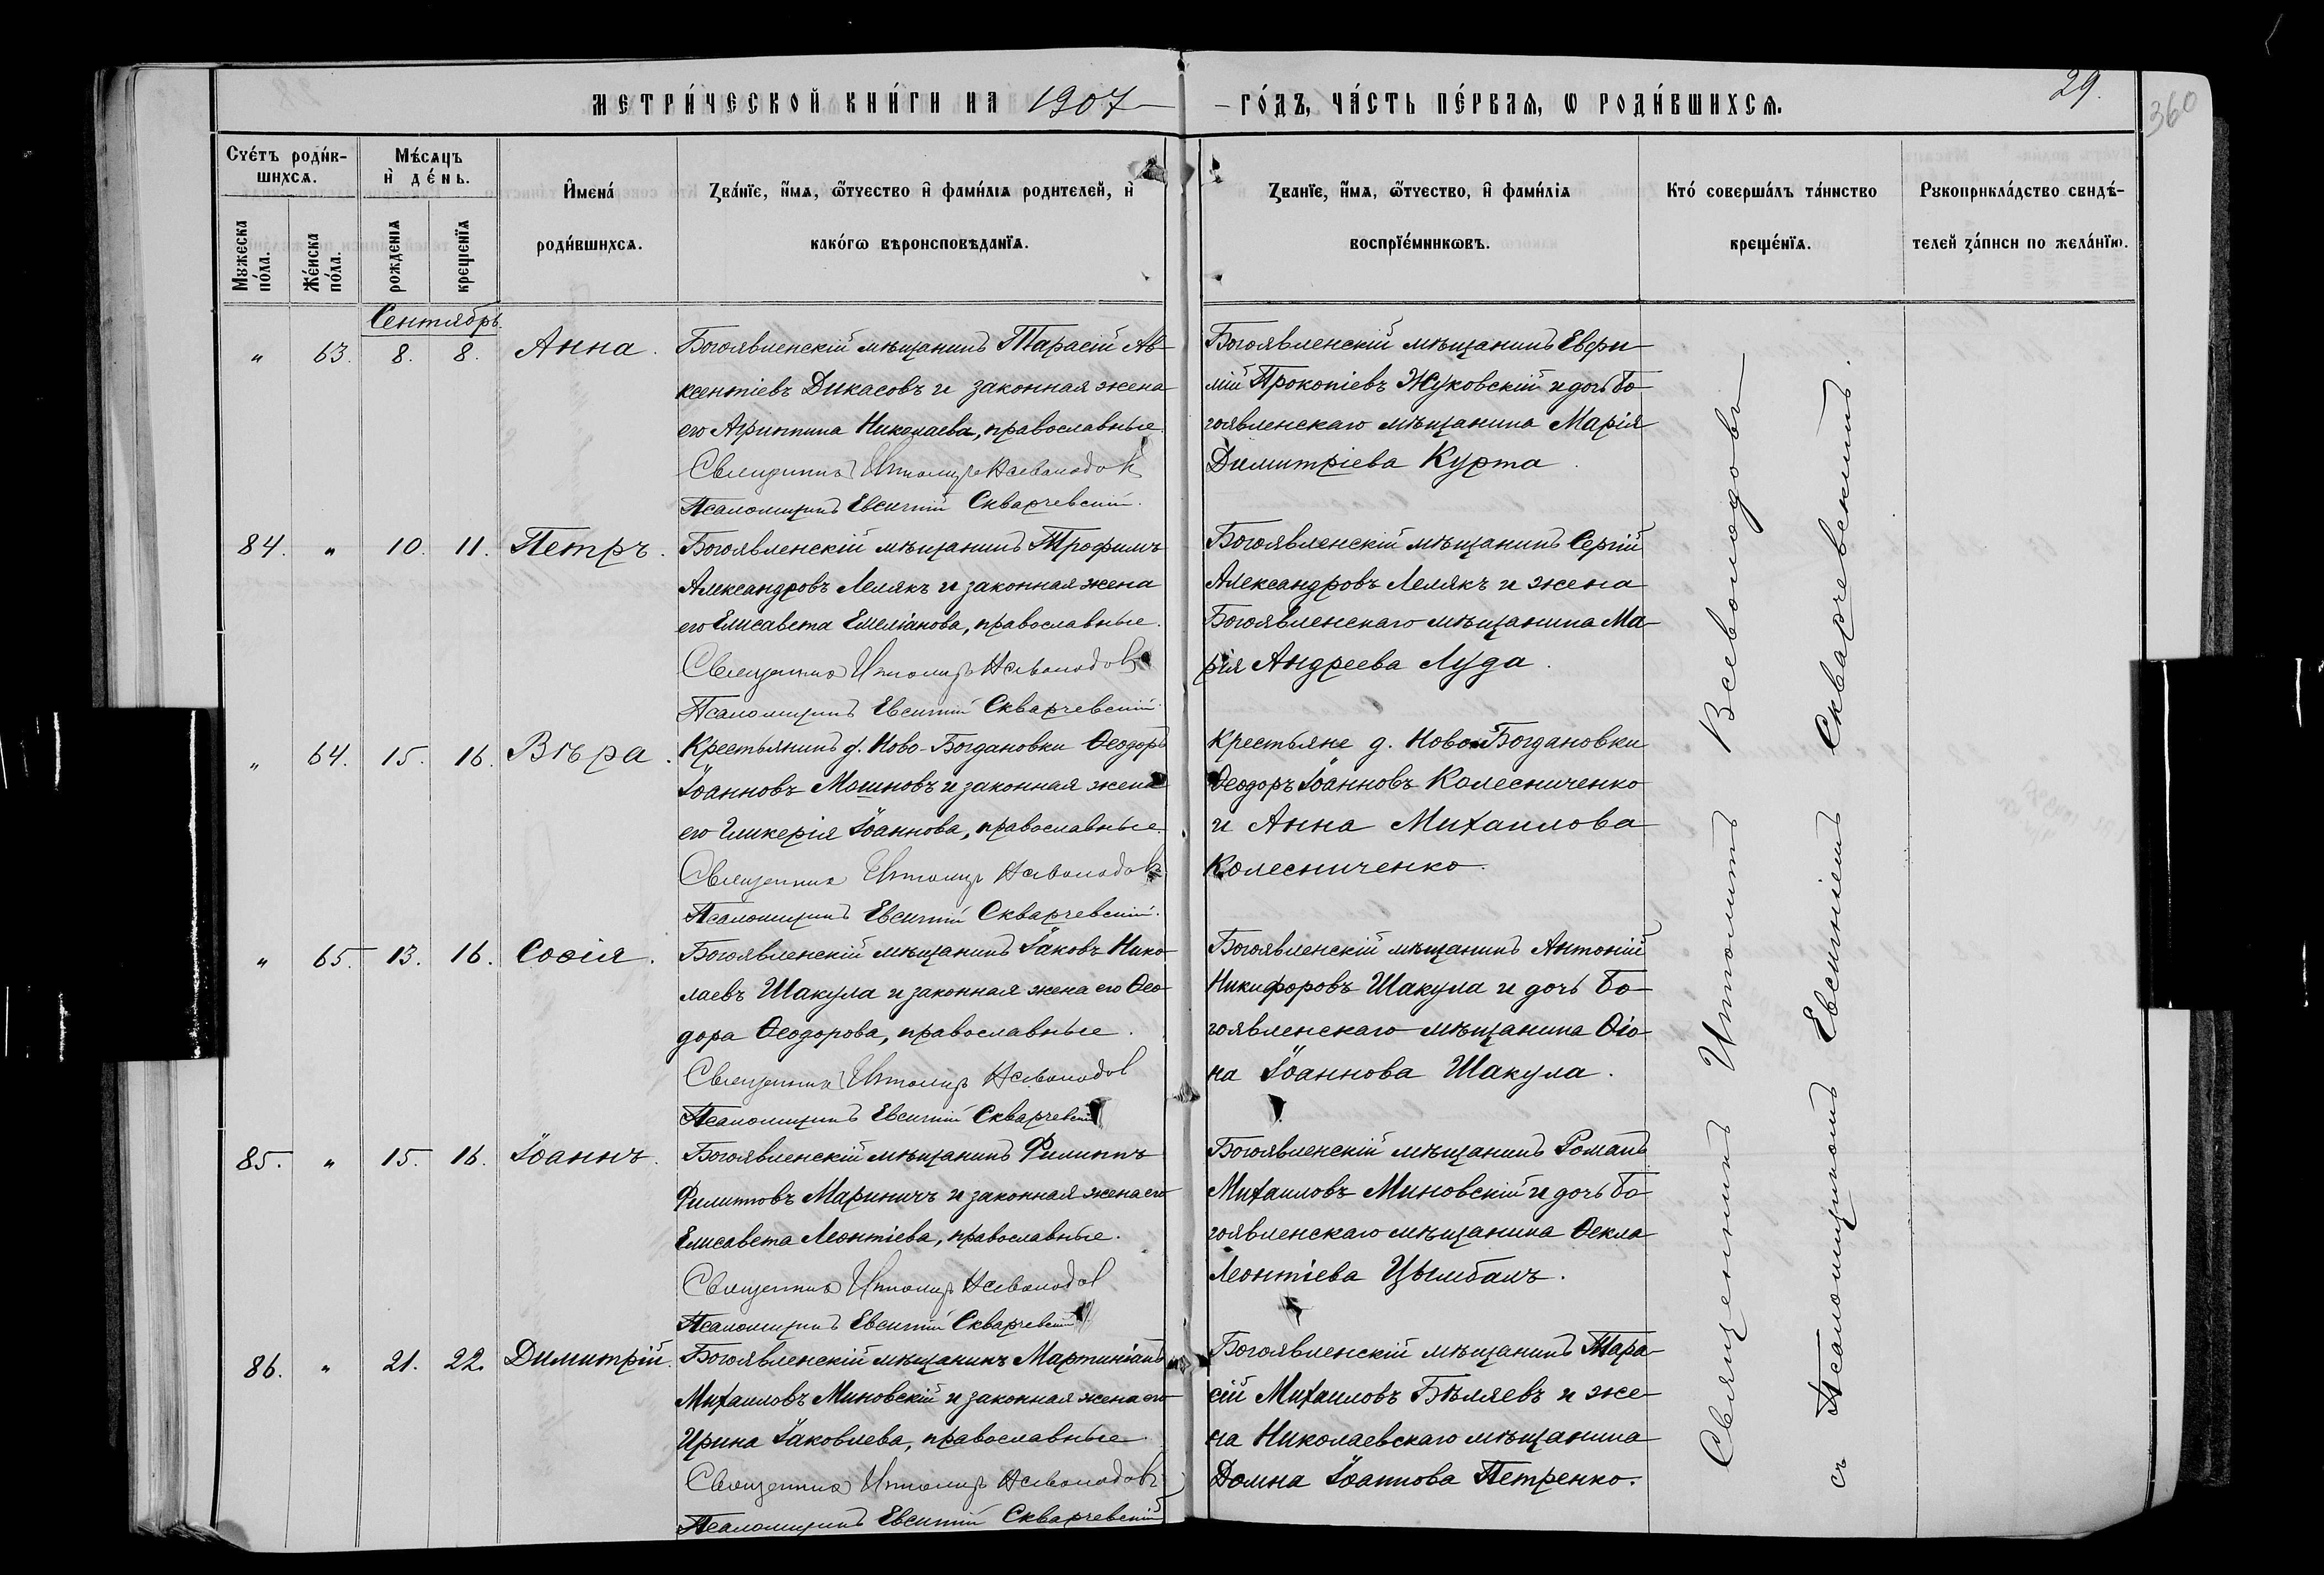 МЕТРИ́ЧЕСКОЙ КНИ́ГИ НА 1907
ГО́ДЪ, ЧА́СТЬ ПЕ́РВАѦ, Ѡ РОДИ́ВШИХСѦ.
29.
360
Сче́тъ роди́в-
шихсѧ.
Мужеска по́ла.
Же́нска по́ла.
Мѣ́сѧцъ
и де́нь.
рожденіѧ
крещеніѧ
Имена́
роди́вшихсѧ.
Зва́нїе, и́мѧ, ѿтчество и фами́ліѧ родителей, и
како́гѡ вѣроисповѣданїѧ.
Званїе, и́мѧ, ѿтчество, и фами́ліѧ
воспрїе́мникѡвъ.
Кто́ соверша́лъ та́инство
креще́нїѧ.
Рукоприкла́дство свидѣ́-
телей за́писи по жела́нїю.
Сентябрь
„ 63. 8. 8. Анна.
Богоявленскій мѣщанинъ Тарасій Ав-
ксентіевъ Дикасовъ и законная жена
его Агриппина Николаева, православные.
Священникъ Ипполитъ Всеволодов
Псаломщикъ Евсигній Скварчевскій.
Богоявленскій мѣщанинъ Евфи-
мій Прокопіевъ Жуковскій и дочь Бо-
гоявленскаго мѣщанина Марія
Димитріева Курта.
84. „ 10. 11. Петръ.
Богоявленскій мѣщанинъ Трофимъ
Александровъ Лемякъ и законная жена
его Елисавета Емеліанова, православные.
Священникъ Ипполитъ Всеволодов
Псаломщикъ Евсигній Скварчевскій
Богоявленскій мѣщанинъ Сергій
Александровъ Лемякъ и жена
Богоявленскаго мѣщанина Ма-
рія Андреева Луда.
„ 64. 15. 16. Вѣра.
Крестьянинъ д. Ново-Богдановки Ѳеодоръ
Іоанновъ Мошновъ и законная жена
его Гликерія Іоаннова, православные.
Священникъ Ипполитъ Всеволодов
Псаломщикъ Евсигній Скварчевскій.
Крестьяне д. Ново-Богдановки
Ѳеодоръ Іоанновъ Колесниченко
и Анна Михаилова
Колесниченко.
„ 65. 13. 16. Софія.
Богоявленскій мѣщанинъ Іаковъ Нико-
лаевъ Шакула и законная жена его Ѳео-
дора Ѳеодорова, православные.
Священникъ Ипполитъ Всеволодов
Псаломщикъ Евсигній Скварчевскій
Богоявленскій мѣщанинъ Антоній
Никифоровъ Шакула и дочь Бо-
гоявленскаго мѣщанина Ѳіо-
на Іоаннова Шакула.
85. „ 15. 16. Іоаннъ.
Богоявленскій мѣщанинъ Филиппъ
Филипповъ Мариничъ и законная жена его
Елисавета Леонтіева, православные.
Священникъ Ипполитъ Всеволодов
Псаломщикъ Евсигній Скварчевскій
Богоявленскій мѣщанинъ Романъ
Михаиловъ Миновскій и дочь Бо-
гоявленскаго мѣщанина Ѳекла
Леонтіева Цымбалъ.
86. „ 21. 22. Димитрій.
Богоявленскій мѣщанинъ Мартиніанъ
Михаиловъ Миновскій и законная жена его
Ирина Іаковлева, православные.
Священникъ Ипполитъ Всеволодовъ
Псаломщикъ Евсигній Скварчевскій
Богоявленскій мѣщанинъ Тара-
сій Михаиловъ Бѣляевъ и же-
на Николаевскаго мѣщанина
Домна Іоаннова Петренко.
Священникъ Ипполитъ Всеволодовъ
съ Псаломщикомъ Евсигніемъ Скварчевскимъ.